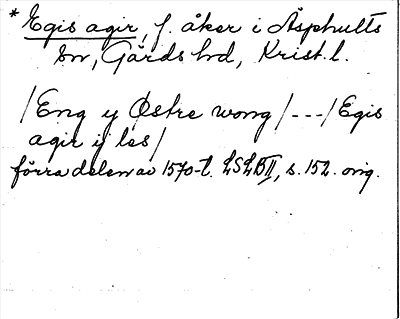 * Egis agir, f. åker i Äsphults
sn, Gärds hd, Krist. l.
/Eng y Østre wong/---/Egis
agir ij les/
förra delen av 1570-t. LSLB II, s. 152. orig.